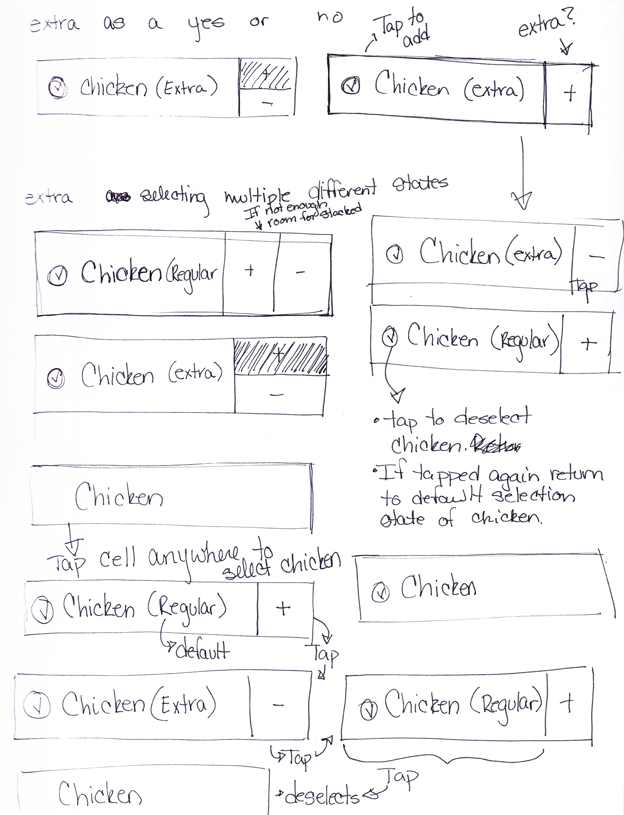 extra as a yes or no
Tap to
add
extra?
Chicken (Extra)
+
-
Chicken (extra)
+
extra selecting multiple different states
If not enough
room for stacked
Chicken (Regular
+
-
Chicken (extra)
-
Tap
Chicken (extra)
+
-
Chicken (Regular)
+
• tap to deselect
chicken.
• If tapped again return
to default selection
state of chicken.
Chicken
Tap cell anywhere to
select chicken
Chicken
Chicken (Regular)
+
default
Tap
Chicken (Extra)
-
Tap
Chicken (Regular)
+
Tap
Chicken
deselects